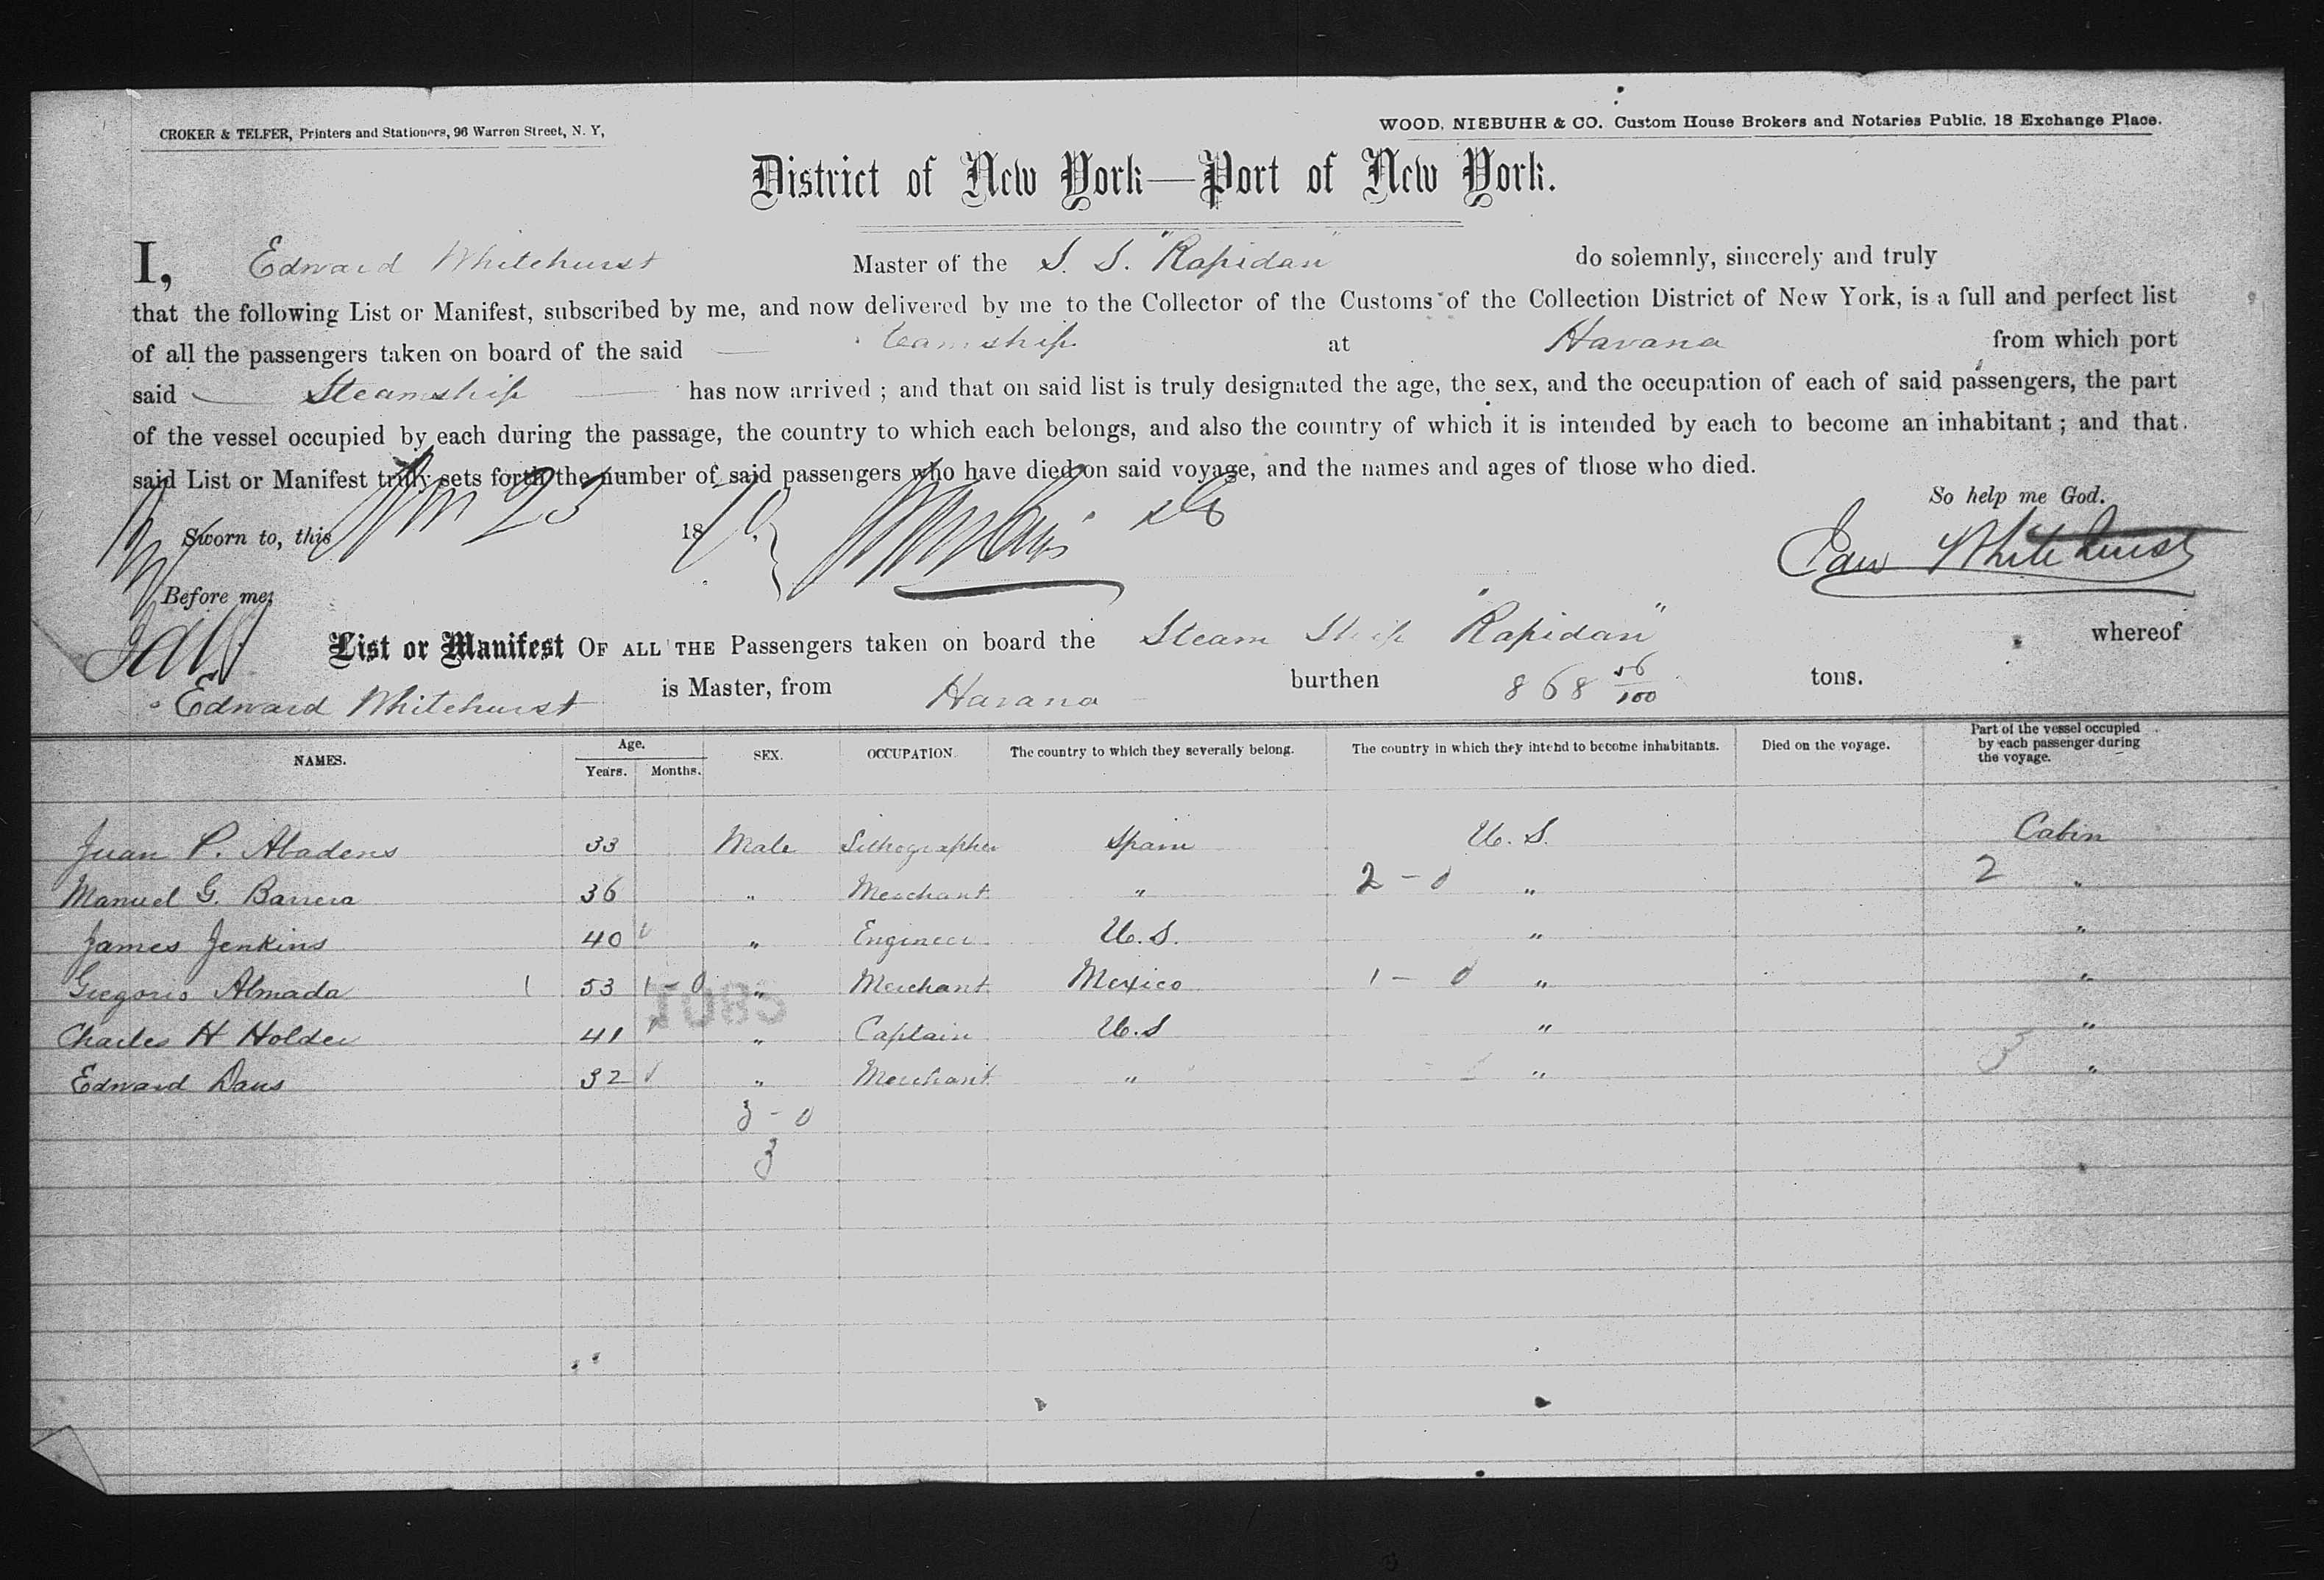 CROKER & TELFER, Printers and Stationers, 96 Warren Street, N. Y,
WOOD, NIEBUHR & CO. Custom House Brokers and Notaries Public, 18 Exchange Place.
District of New York—Port of New York.
I, Edward Whitehurst Master of the S. S. "Rapidan" do solemnly, sincerely and truly
that the following List or Manifest, subscribed by me, and now delivered by me to the Collector of the Customs of the Collection District of New York, is a full and perfect list
of all the passengers taken on board of the said Steamship at Havana from which port
said Steamship has now arrived ; and that on said list is truly designated the age, the sex, and the occupation of each of said passengers, the part
of the vessel occupied by each during the passage, the country to which each belongs, and also the country of which it is intended by each to become an inhabitant ; and that
said List or Manifest truly sets forth the number of said passengers who have died on said voyage, and the names and ages of those who died.
So help me God.
Sworn to, this 23 18
Whitehurst
Before me,
List or Manifest OF ALL THE Passengers taken on board the Steam Ship "Rapidan" whereof
Edward Whitehurst is Master, from Havana burthen 868 56/100 tons.
NAMES. Age. Years. Months. SEX. OCCUPATION. The country to which they severally belong. The country in which they intend to become inhabitants. Died on the voyage. Part of the vessel occupied by each passenger during the voyage.
Juan P. Abadens 33 Male Lithographer Spain U. S. Cabin
Manuel G. Barrera 36 " Merchant " 2 - 0 " 2 "
James Jenkins 40 " Engineer U. S. " "
Gregorio Almada 1 53 1 - 0 " Merchant Mexico 1 - 0 " "
Charles H Holder 41 " Captain U. S " "
Edward Daus 32 " Merchant " " 3 "
3 - 0
3